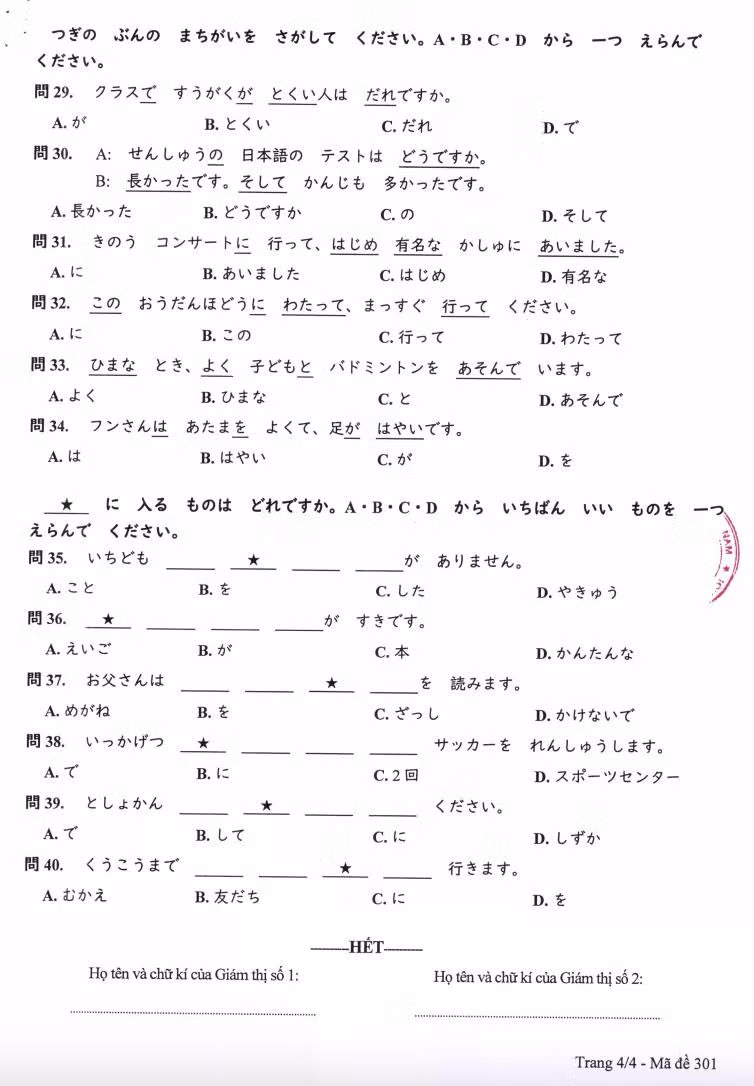 つぎの ぶんの まちがいを さがして ください。A・B・C・D から 一つ えらんで
ください。
問 29. クラスで すうがくが とくい人は だれですか。
A. が B. とくい C. だれ D. で
問 30. A: せんしゅうの 日本語の テストは どうですか。
B: 長かったです。そして かんじも 多かったです。
A. 長かった B. どうですか C. の D. そして
問 31. きのう コンサートに 行って、はじめ 有名な かしゅに あいました。
A. に B. あいました C. はじめ D. 有名な
問 32. この おうだんほどうに わたって、まっすぐ 行って ください。
A. に B. この C. 行って D. わたって
問 33. ひまな とき、よく 子どもと バドミントンを あそんで います。
A. よく B. ひまな C. と D. あそんで
問 34. フンさんは あたまを よくて、足が はやいです。
A. は B. はやい C. が D. を
★ に 入る ものは どれですか。A・B・C・D から いちばん いい ものを 一つ
えらんで ください。
問 35. いちども ____ ★ ____ ____が ありません。
A. こと B. を C. した D. やきゅう
問 36. ★ ____ ____ ____が すきです。
A. えいご B. が C. 本 D. かんたんな
問 37. お父さんは ____ ____ ★ ____を 読みます。
A. めがね B. を C. ざっし D. かけないで
問 38. いっかげつ ★ ____ ____ ____ サッカーを れんしゅうします。
A. で B. に C. 2 回 D. スポーツセンター
問 39. としょかん ____ ★ ____ ____ ください。
A. で B. して C. に D. しずか
問 40. くうこうまで ____ ____ ★ ____ 行きます。
A. むかえ B. 友だち C. に D. を
----------HẾT----------
Họ tên và chữ kí của Giám thị số 1: Họ tên và chữ kí của Giám thị số 2:
Trang 4/4 - Mã đề 301